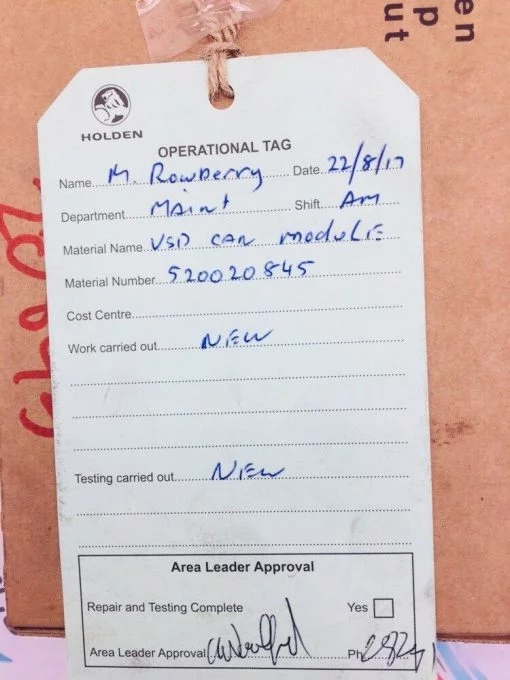 en
p
ut
HOLDEN
OPERATIONAL TAG
Name M. Rowberry Date 22/8/17
Department Maint Shift AM
Material Name VSD CAN MODULE
Material Number 520020845
Cost Centre
Work carried out NEW
Testing carried out NEW
Area Leader Approval
Repair and Testing Complete Yes
Area Leader Approval Ph